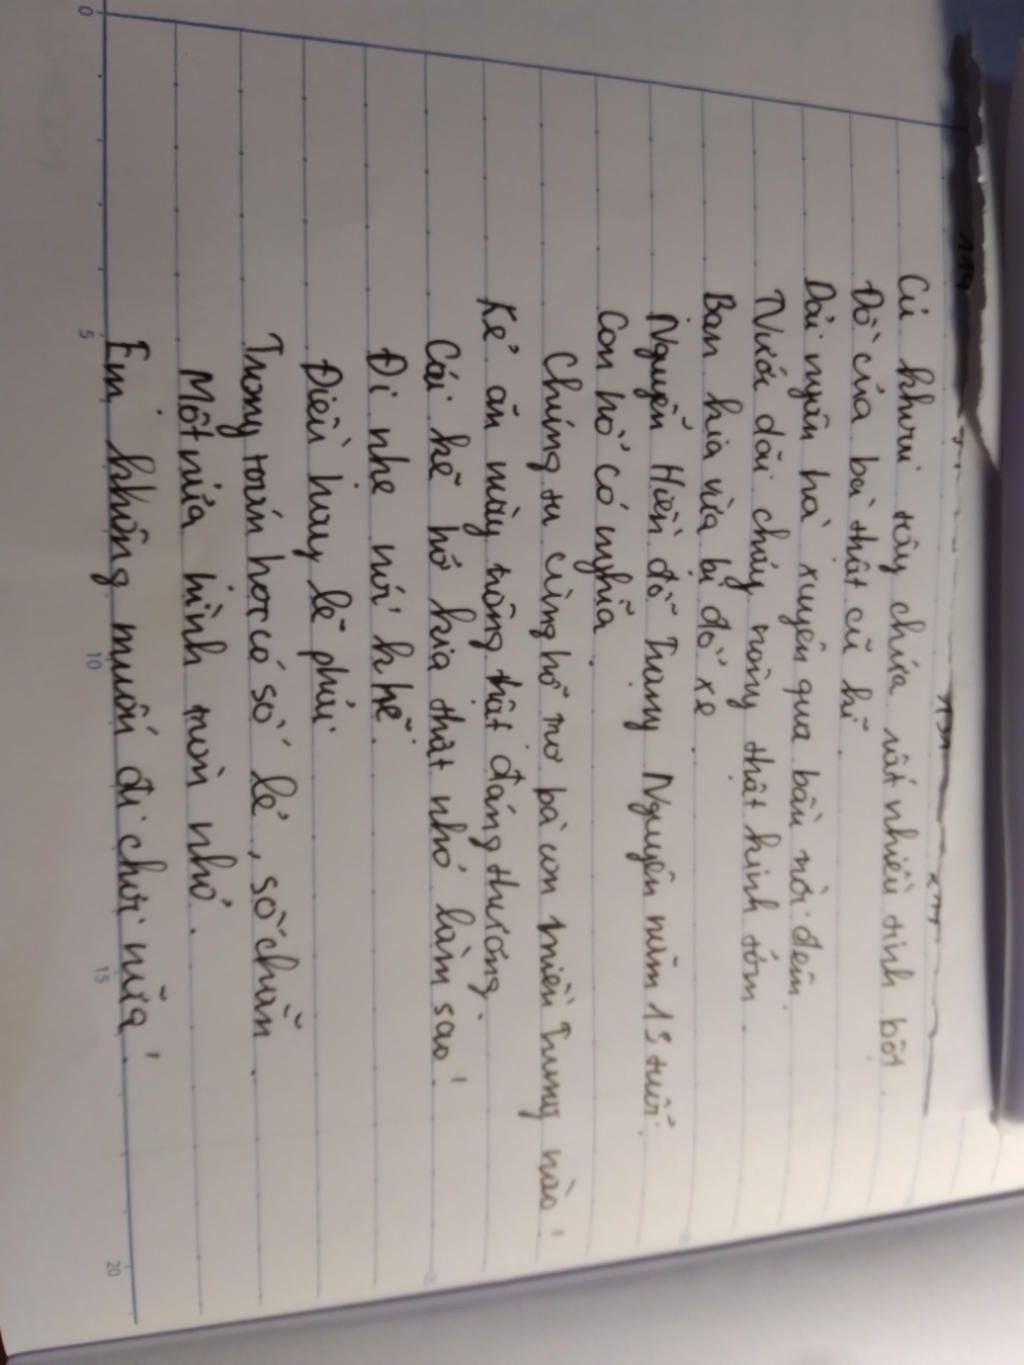 Củ khoai tây chứa rất nhiều tinh bột.
Đồ của bà thật cũ kĩ.
Dải ngân hà xuyên qua bầu trời đêm.
Nước dãi chảy ròng thật kinh tởm.
Ban kia vừa bị đổ xe.
Nguyễn Hiền đỗ Trạng Nguyên năm 13 tuổi.
Con hổ có nghĩa.
Chúng ta cùng hỗ trợ bà con miền Trung nào!
Kẻ ăn mày trông thật đáng thương.
Cái kẽ hở kia thật nhỏ làm sao!
Đi nhẹ nói khẽ.
Điều hay lẽ phải
Trong toán học có số lẻ, số chẵn.
Một nửa hình tròn nhỏ.
Em không muốn đi chơi nữa!
0
5
10
15
20